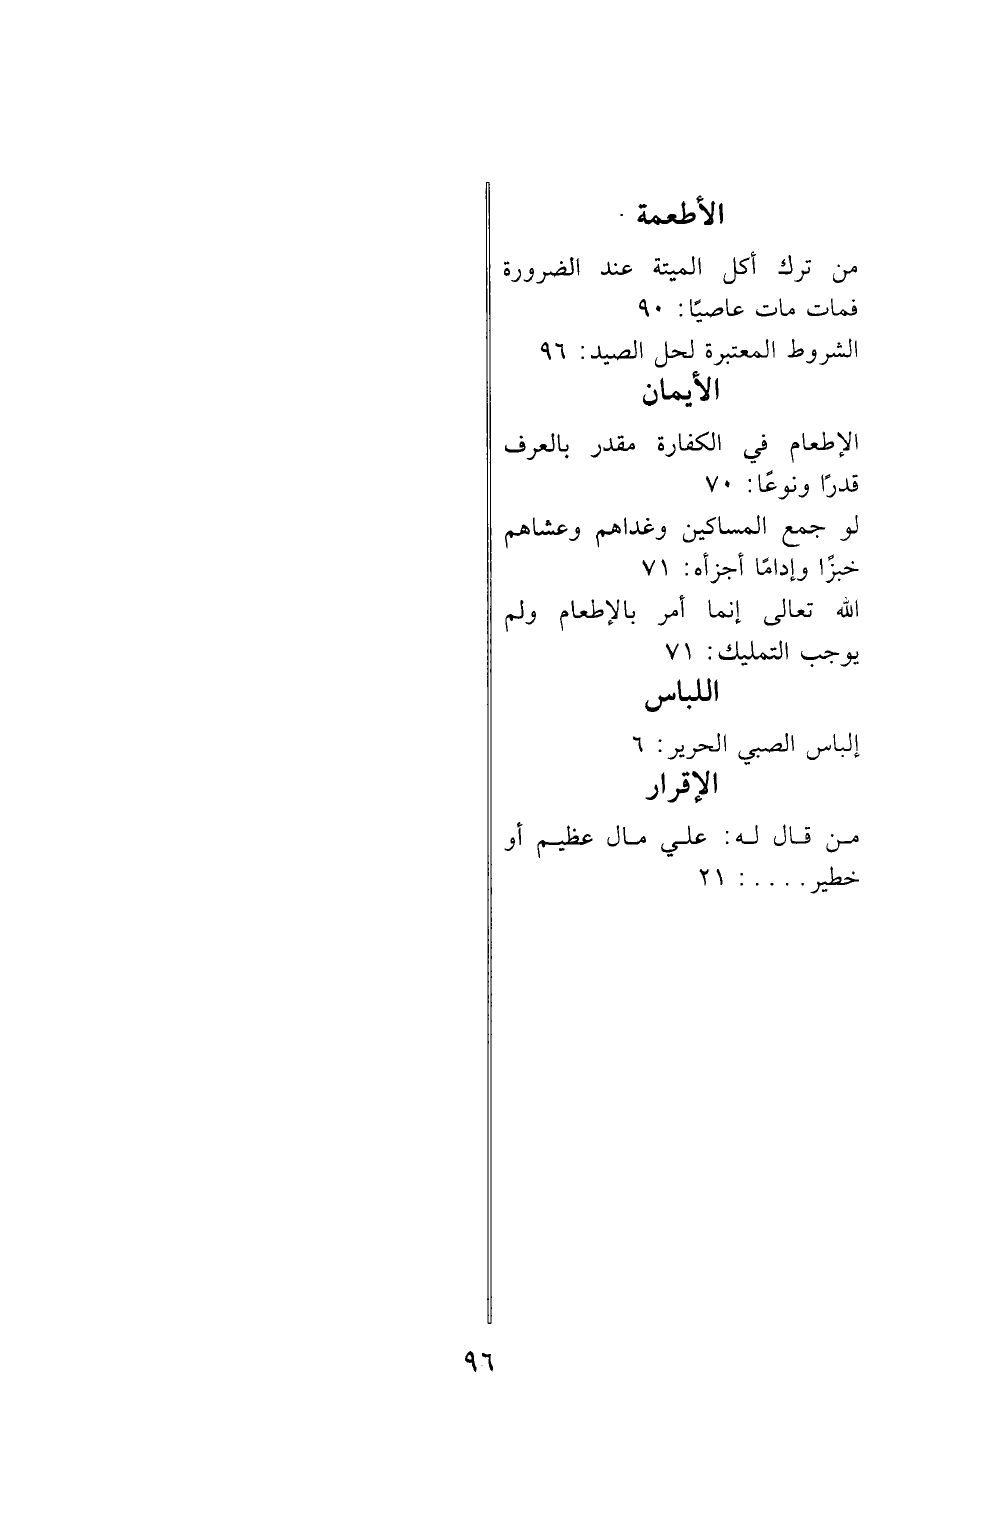 الأطعمة
من ترك أكل الميتة عند الضرورة
فمات مات عاصيًا: ٩٠
الشروط المعتبرة لحل الصيد: ٩٦
الأيمان
الإطعام في الكفارة مقدر بالعرف
قدرًا ونوعًا: ٧٠
لو جمع المساكين وغداهم وعشاهم
خبزًا وإدامًا أجزأه: ٧١
الله تعالى إنما أمر بالإطعام ولم
يوجب التمليك: ٧١
اللباس
إلباس الصبي الحرير: ٦
الإقرار
من قال له: علي مال عظيم أو
خطير....: ٢١
٩٦